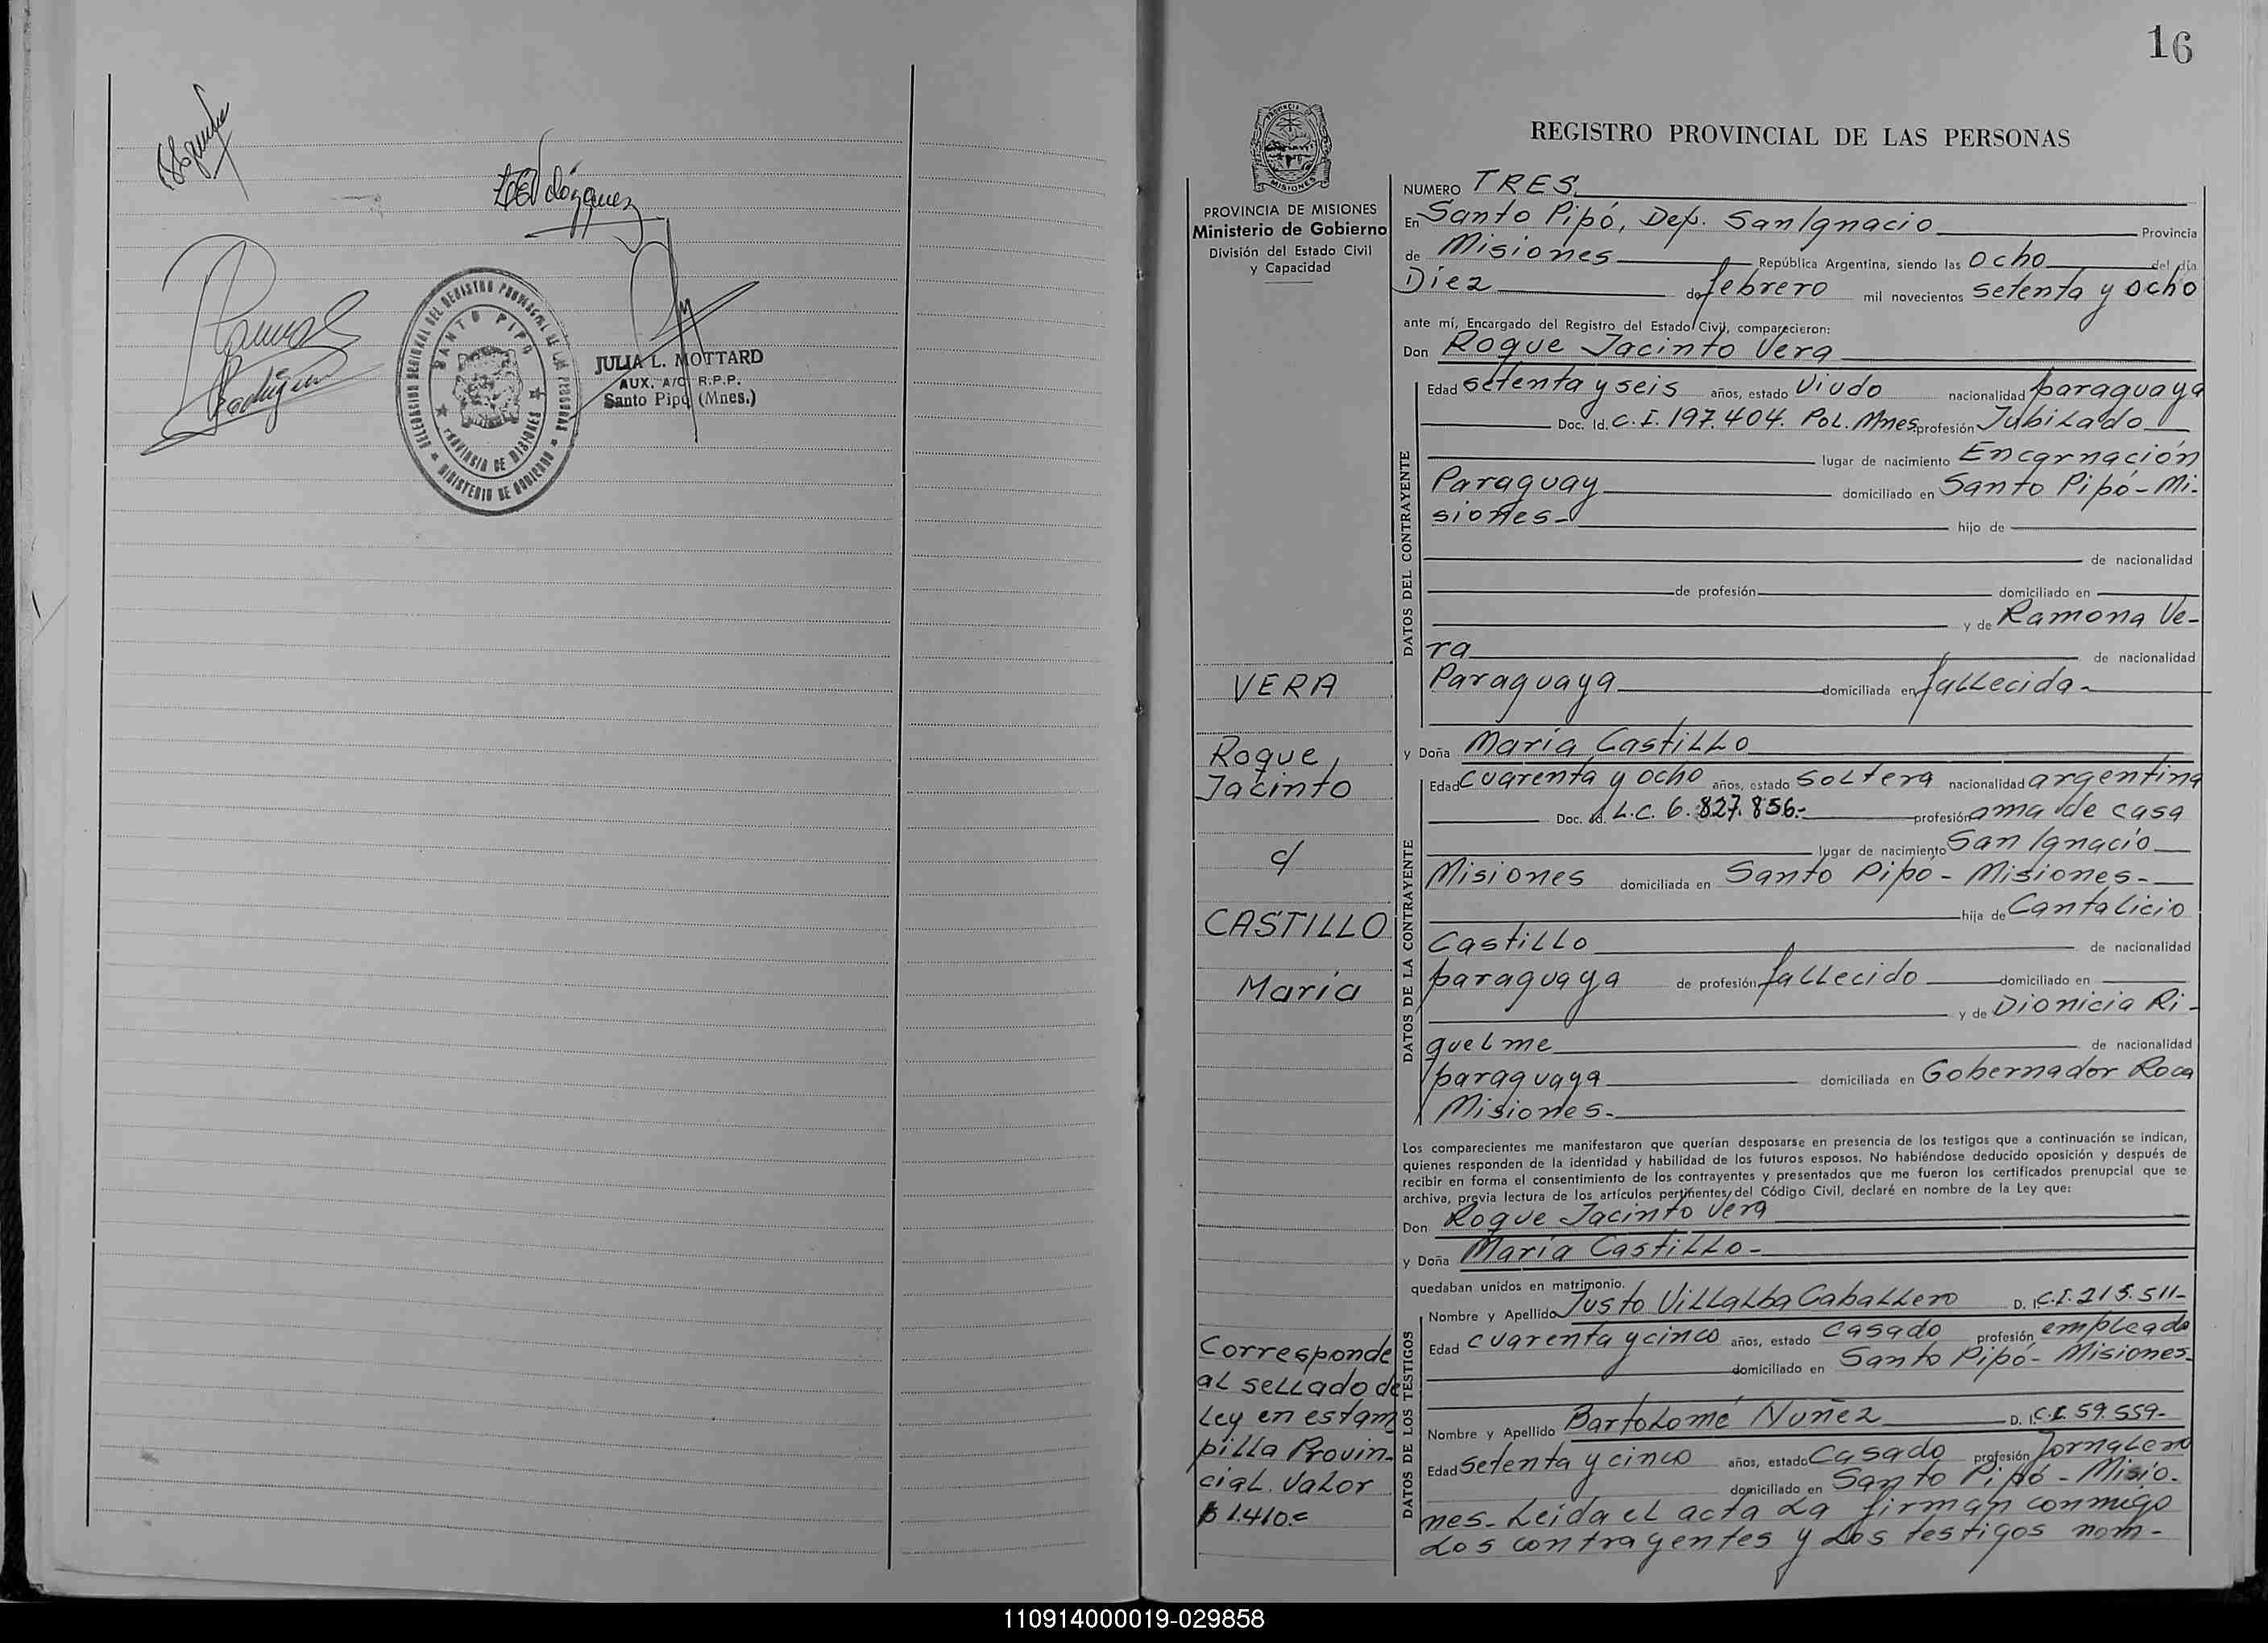 JULIA L. MOTTARD
AUX. A/C. R.P.P.
Santo Pipó (Mnes.)
DELEGACION REGIONAL DEL REGISTRO PROVINCIAL DE LAS PERSONAS
SANTO PIPO
PROVINCIA DE MISIONES
MINISTERIO DE GOBIERNO
16
PROVINCIA
MISIONES
REGISTRO PROVINCIAL DE LAS PERSONAS
PROVINCIA DE MISIONES
Ministerio de Gobierno
División del Estado Civil
y Capacidad
NUMERO TRES
En Santo Pipó, Dep. San Ignacio Provincia
de Misiones República Argentina, siendo las ocho del día
Diez de febrero mil novecientos setenta y ocho
ante mí, Encargado del Registro del Estado Civil, comparecieron:
Don Roque Jacinto Vera
DATOS DEL CONTRAYENTE
Edad setenta y seis años, estado viudo nacionalidad paraguaya
Doc. Id. C.I. 197.404. Pol. Mnes. profesión Jubilado
lugar de nacimiento Encarnación
Paraguay domiciliado en Santo Pipó - Mi-
siones - hijo de
de nacionalidad
de profesión domiciliado en
y de Ramona Ve-
ra de nacionalidad
Paraguaya domiciliada en fallecida -
VERA
Roque
Jacinto
c/
CASTILLO
María
y Doña María Castillo
DATOS DE LA CONTRAYENTE
Edad cuarenta y ocho años, estado soltera nacionalidad argentina
Doc. Id. L.C. 6.827.856.- profesión ama de casa
lugar de nacimiento San Ignacio
Misiones domiciliada en Santo Pipó - Misiones -
hija de Cantalicio
Castillo de nacionalidad
paraguaya de profesión fallecido domiciliado en
y de Dionicia Ri-
quelme de nacionalidad
paraguaya domiciliada en Gobernador Roca
Misiones -
Los comparecientes me manifestaron que querían desposarse en presencia de los testigos que a continuación se indican,
quienes responden de la identidad y habilidad de los futuros esposos. No habiéndose deducido oposición y después de
recibir en forma el consentimiento de los contrayentes y presentados que me fueron los certificados prenupcial que se
archiva, previa lectura de los artículos pertinentes del Código Civil, declaré en nombre de la Ley que:
Don Roque Jacinto Vera
y Doña María Castillo -
quedaban unidos en matrimonio.
DATOS DE LOS TESTIGOS
Nombre y Apellido Justo Villalba Caballero D. I. C.I. 215.511-
Edad cuarenta y cinco años, estado casado profesión empleado
domiciliado en Santo Pipó - Misiones -
Nombre y Apellido Bartolomé Nuñez D. I. C.I. 59.559-
Edad setenta y cinco años, estado casado profesión Jornalero
domiciliado en Santo Pipó - Misio-
nes - Leída el acta la firman conmigo
los contrayentes y los testigos nom-
Corresponde
al sellado de
Ley en estam
pilla Provin-
cial. Valor
$ 1.410.=
110914000019-029858